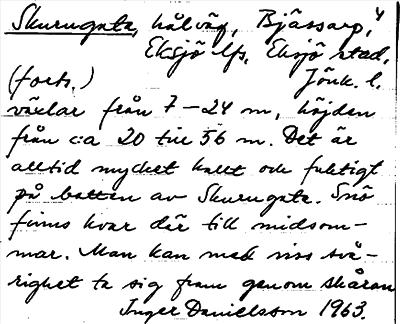 Skurugata, hålväg, Bjässarp, 4
Eksjö lfs, Eksjö stad,
(forts.) Jönk. l.
växlar från 7-24 m, höjden
från c:a 20 till 56 m. Det är
alltid mycket kallt och fuktigt
på botten av Skurugata. Snö
finns kvar där till midsom-
mar. Man kan med viss svå-
righet ta sig fram genom skåran
Inger Danielsson 1963.